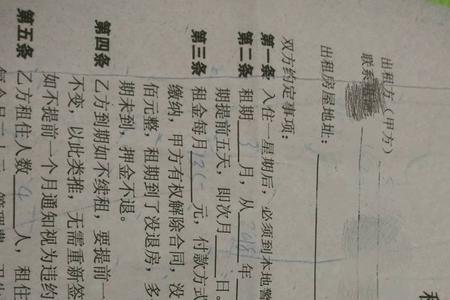 出租方（甲方）
联系
出租房屋地址：
双方约定事项：
第一条 入住一星期后，必须到本地警
第二条 租期 3 月，从 年
期提前五天，即次月 日。
第三条 租金每月 元，付款方式
缴纳，甲方有权解除合同，没
佰元整，租期到了没退房，多
期未到，押金不退。
第四条 乙方到期如不续租，要提前一
不变，以此类推，无需重新签
如不提前一个月通知视为违约
第五条 乙方租住人数 4 人，租住